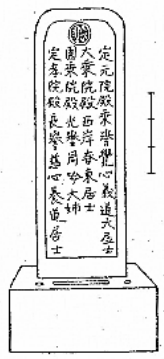 定元院殿乗誉覺心義道大居士
大乗院殿西岸春東居士
圓乗院殿光誉周吟大姉
定孝院殿長誉慈心養道居士